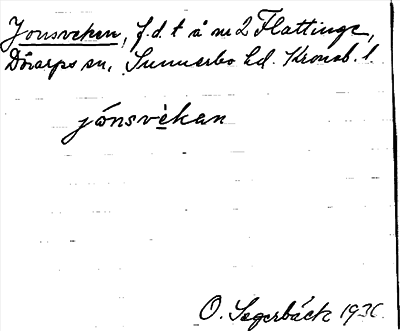 Jonsveken, f.d. t å nr 2 Flattinge,
Dörarps sn, Sunnerbo hd. Kronob. l.
jónsvèkan
O. Segerbäck 1930.